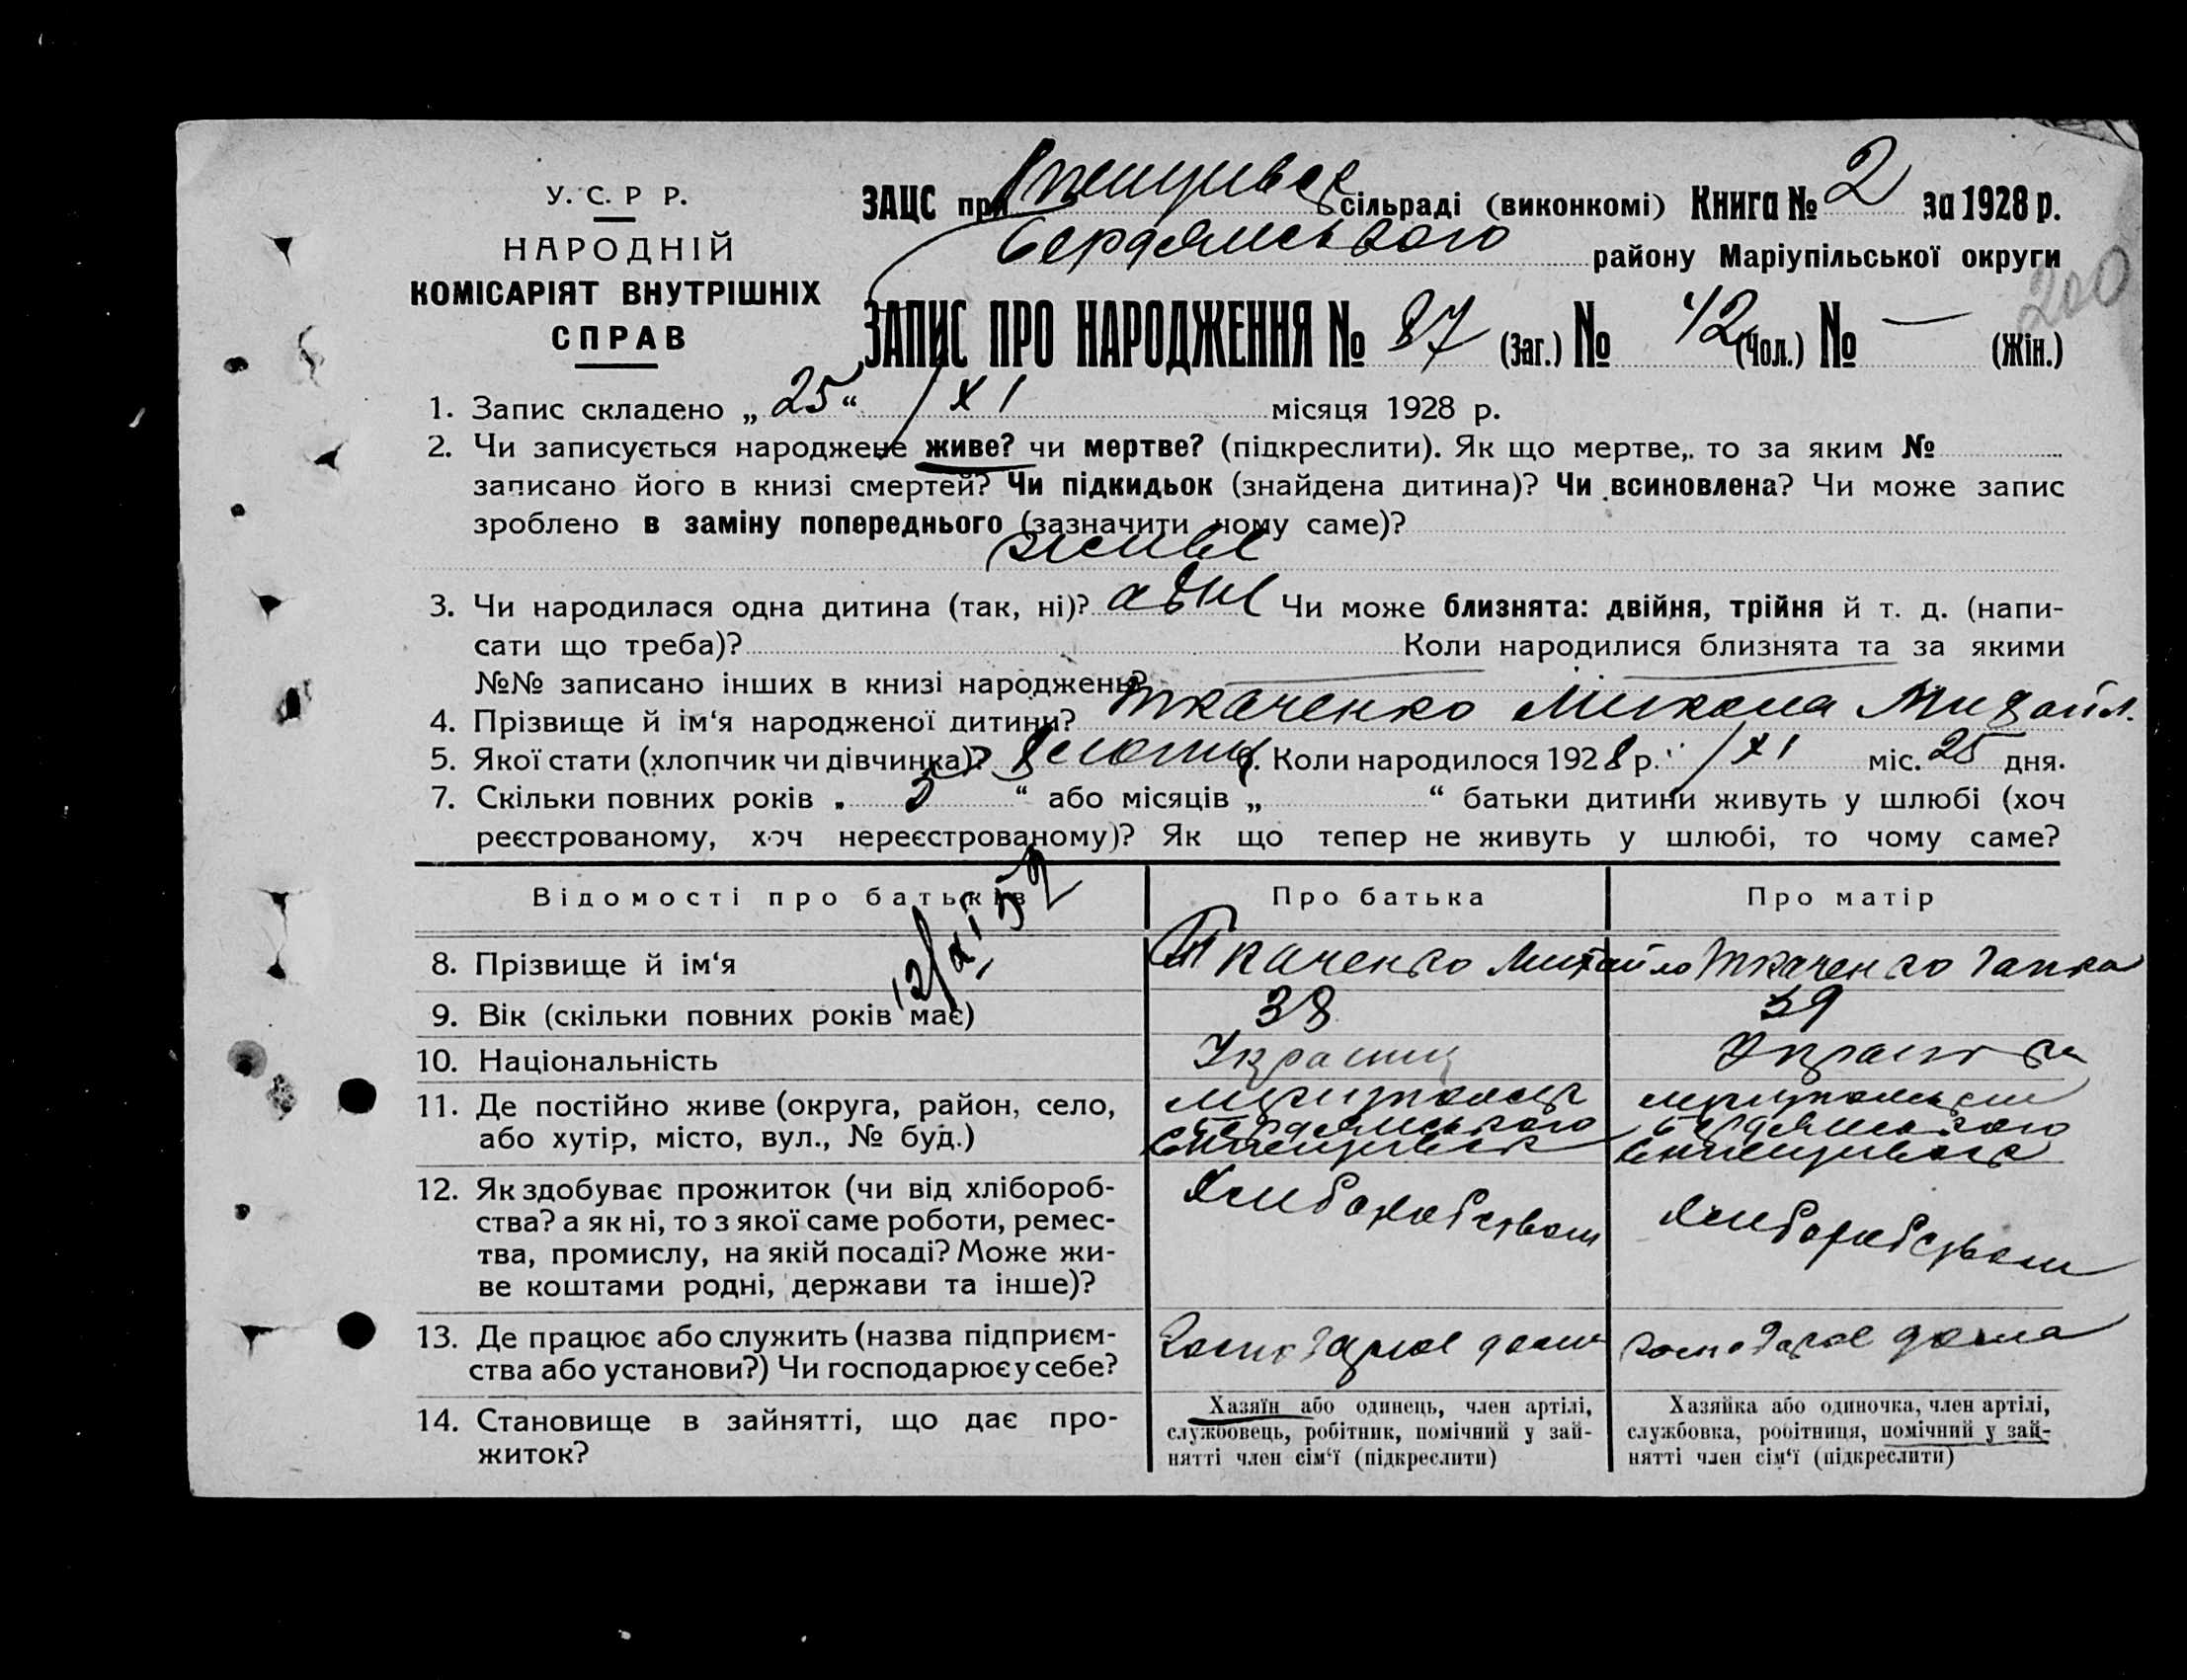 У. С. Р Р.
НАРОДНІЙ
КОМІСАРІЯТ ВНУТРІШНІХ
СПРАВ
ЗАЦС при сільраді (виконкомі) Книга № 2 за 1928 р.
Бердянського району Маріупільської округи
200
ЗАПИС ПРО НАРОДЖЕННЯ № 87 (Заг.) № 42 (Чол.) № — (Жін.)
1. Запис складено „ 25 “ / XI місяця 1928 р.
2. Чи записується народжене живе? чи мертве? (підкреслити). Як що мертве, то за яким №
записано його в книзі смертей? Чи підкидьок (знайдена дитина)? Чи всиновлена? Чи може запис
зроблено в заміну попереднього (зазначити чому саме)?
живе
3. Чи народилася одна дитина (так, ні)? одне Чи може близнята: двійня, трійня й т. д. (напи-
сати що треба)? Коли народилися близнята та за якими
№№ записано інших в книзі народжень?
4. Прізвище й ім‘я народженої дитини? Ткаченко Микола Михайл.
5. Якої стати (хлопчик чи дівчинка)? Хлопчик. Коли народилося 1928 р. / XI міс. 25 дня.
7. Скільки повних років „ “ або місяців „ “ батьки дитини живуть у шлюбі (хоч
реєстрованому, хоч нереєстрованому)? Як що тепер не живуть у шлюбі, то чому саме?
Відомості про батьків Про батька Про матір
8. Прізвище й ім‘я Ткаченко Михайло Ткаченко Гапка
9. Вік (скільки повних років має) 38 39
10. Національність Украинц Украинка
11. Де постійно живе (округа, район, село,
або хутір, місто, вул., № буд.) Бердянського Бердянського
12. Як здобуває прожиток (чи від хлібороб-
ства? а як ні, то з якої саме роботи, ремес-
тва, промислу, на якій посаді? Може жи-
ве коштами родні, держави та інше)? Хлиборобством Хлиборобством
13. Де працює або служить (назва підприєм-
ства або установи?) Чи господарює у себе? господарює дома господарює дома
14. Становище в зайнятті, що дає про-
житок?
Хазяїн або одинець, член артілі,
службовець, робітник, помічний у зай-
нятті член сім‘ї (підкреслити)
Хазяйка або одиночка, член артілі,
службовка, робітниця, помічний у зай-
нятті член сім‘ї (підкреслити)